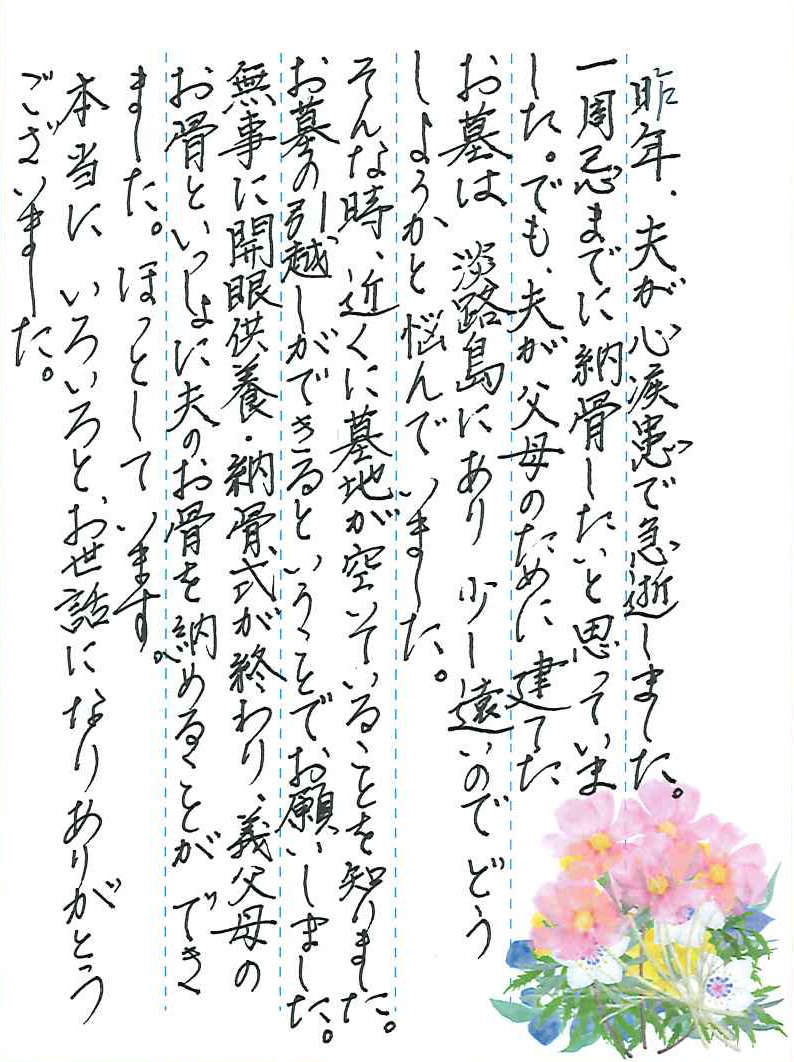 昨年、夫が心疾患で急逝しました。
一周忌までに納骨したいと思っていま
した。でも、夫が父母のために建てた
お墓は 淡路島にあり 少し遠いので どう
しようかと 悩んで いました。
そんな時、近くに墓地が空いていることを知りました。
お墓の引越しができるということでお願いしました。
無事に開眼供養・納骨式が終わり、義父母の
お骨といっしょに夫のお骨を納めることが でき
ました。ほっとして います。
本当に いろいろと、お世話になりありがとう
ございました。